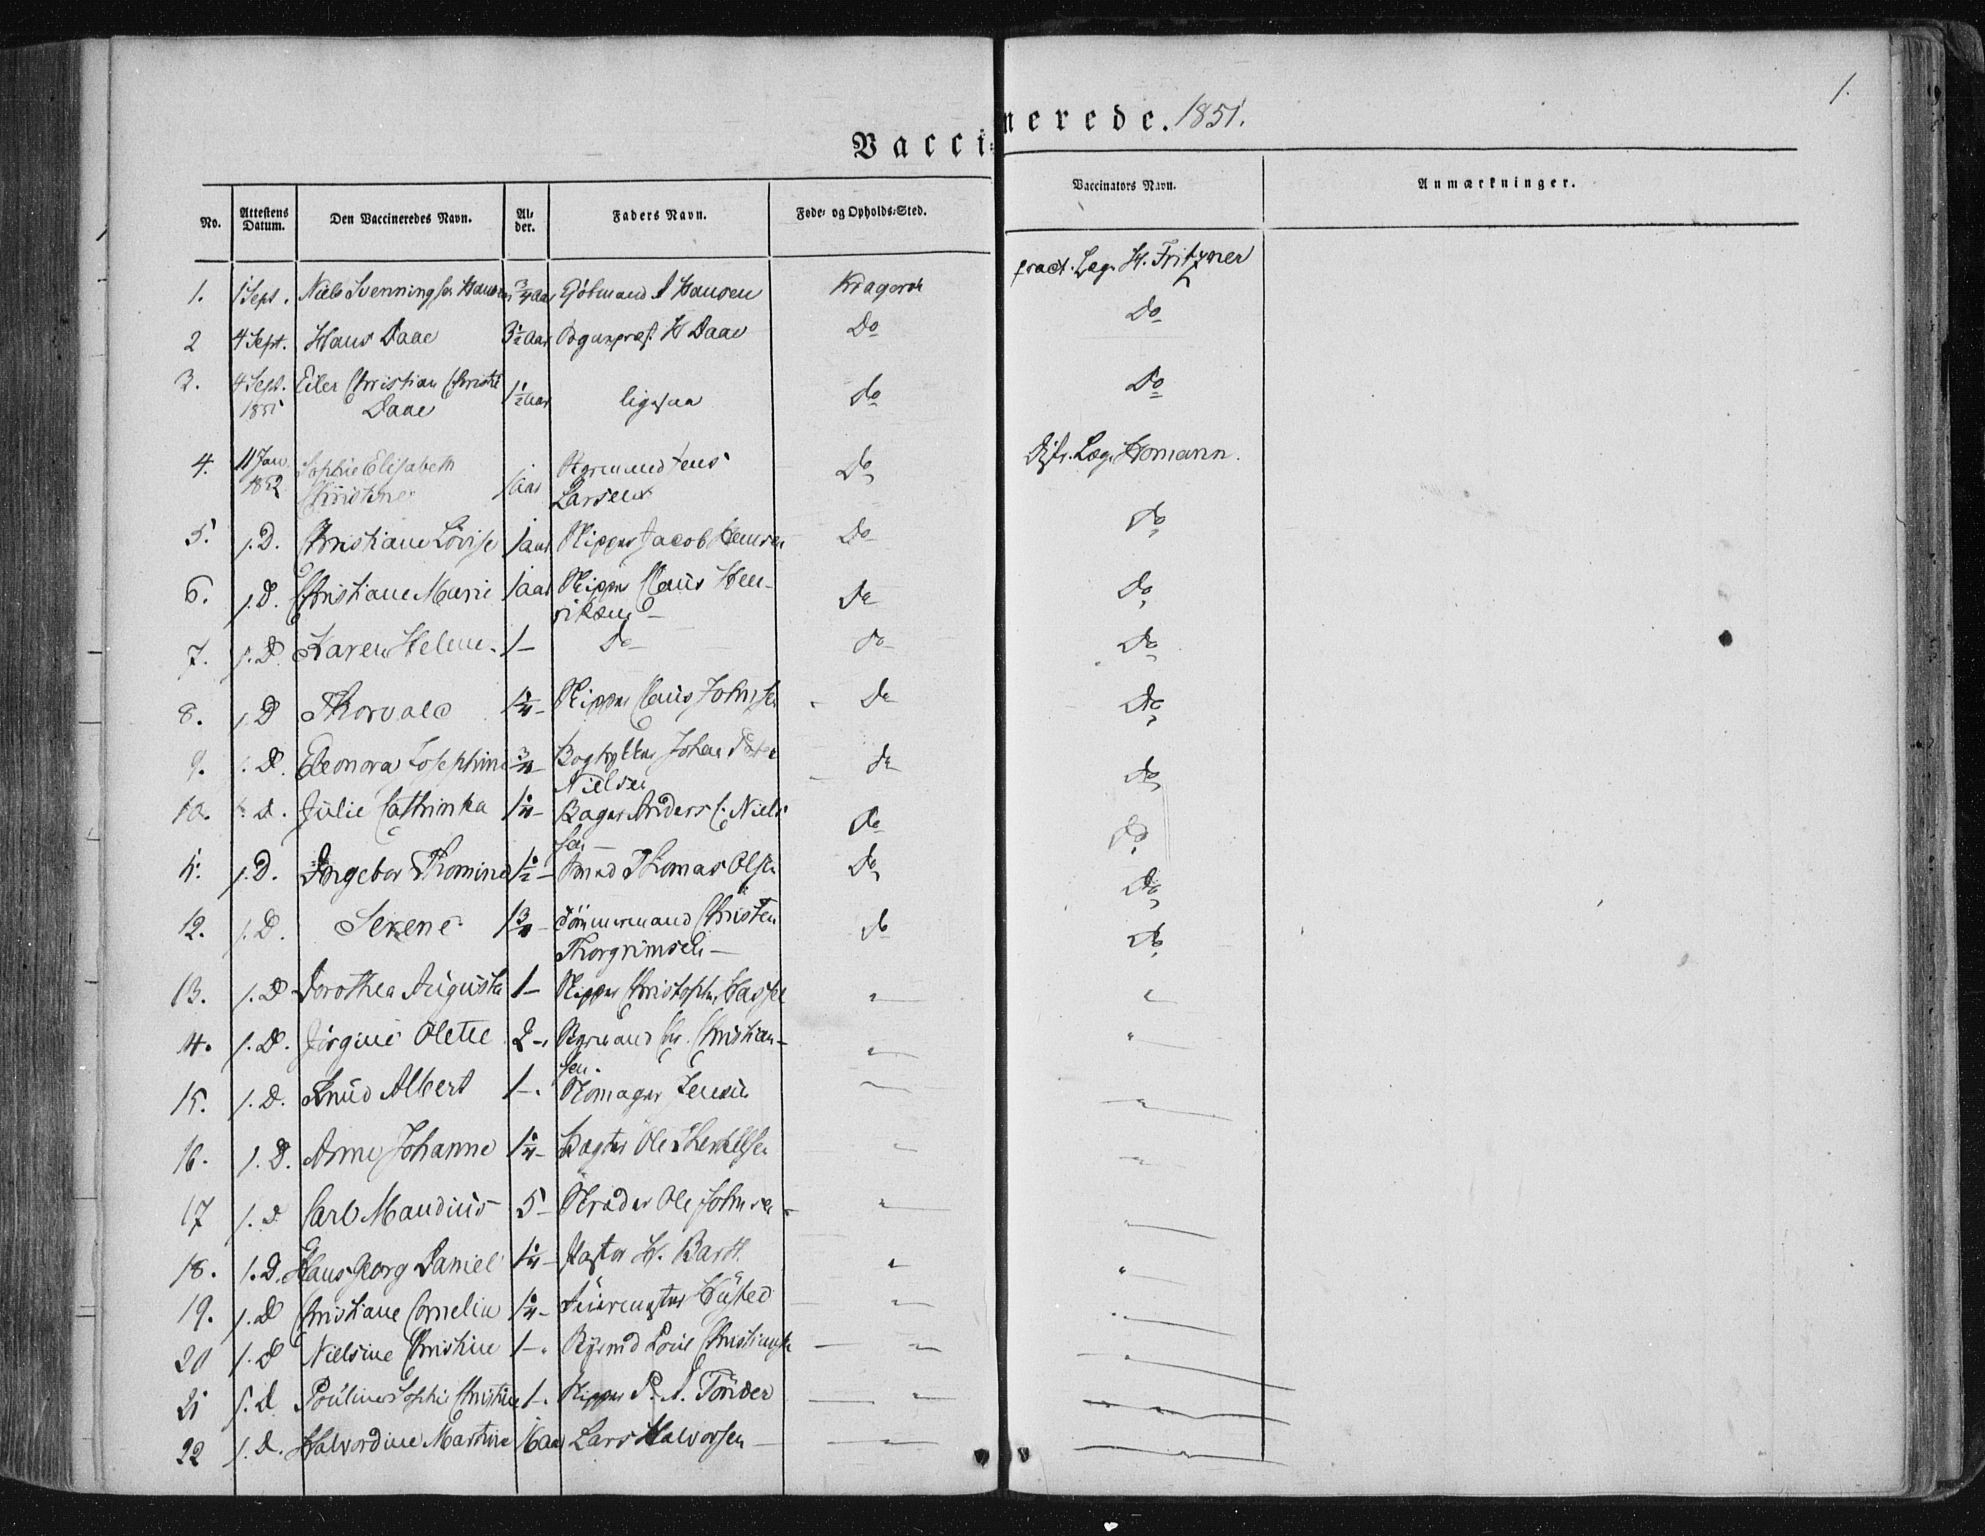 1.
Vaccinerede. 1851.
No. Attestens Datum. Den Vaccineredes Navn. Alder. Faders Navn. Føde- og Opholds-Sted. Vaccinators Navn. Anmærkninger.
1. 1 Sept. Niels Svenningsen Hansen 3/4 aar Hansen Kragerøe pract. Læge H. Fritzner
2 4 Sept. Hans Daae 3 1/2 aar Sognepræst H Daae Do Do
3. 4 Sept. 1851 Eiler Christian Christie Daae 1 1/2 aar ligesaa do Do
4. 11 Jan. 1852 Sophie Elisabeth Christine 1 aar Jens Larsen Do Distr. Læge Homann.
5. s. D. Christiane Lovise 1 aar Skipper Jacob Hansen Do Do
6. s. D. Christiane Marie 1 aar Skipper Claus Henriksen Do Do
7. s. D. Karen Helene 1 – Do do Do
8. s. D Thorvald 1 1/4 – Skipper Claus Johnsen Do Do
9. s. D. Eleonora Josephine 3/4 – Bogtrykker Johan Nielsen do Do
10. s. D. Julie Cathrinka 1 1/4 – Bager Anders C. Nielsen Do Do
11. s. D. Ingebor Thomine 1 1/2 – Thomas Olsen Do Do
12. s. D. Serene 1 3/4 – Tömmermand Christen Thorgrimsen – do Do
13. s. D Dorothea Augusta 1 – Skipper Christopher Hassel " "
14. s. D. Jörgine Oletie 2 – Chr. Christiansen " "
15. s. D. Knud Albert 1 –. Jensen " "
16. s. D. Anne Johanne 1 1/4 – Ole Therkelsen " "
17 s. D Carl Maudius 5 – Ole Johnsen " "
18. s. D. Hans Georg Daniel 1 1/4 – Pastor H. Barth " "
19. s. D Christiane Cornelia 1 1/4 – Husted " "
20 s. D Nielsine Christine 1 –. Christiansen " "
21 s. D Pouline Sophie Christine 1 –. Skipper P. A. Tönder " "
22 s. D. Halvordine Martine 16 aar Lars Halvorsen – " "